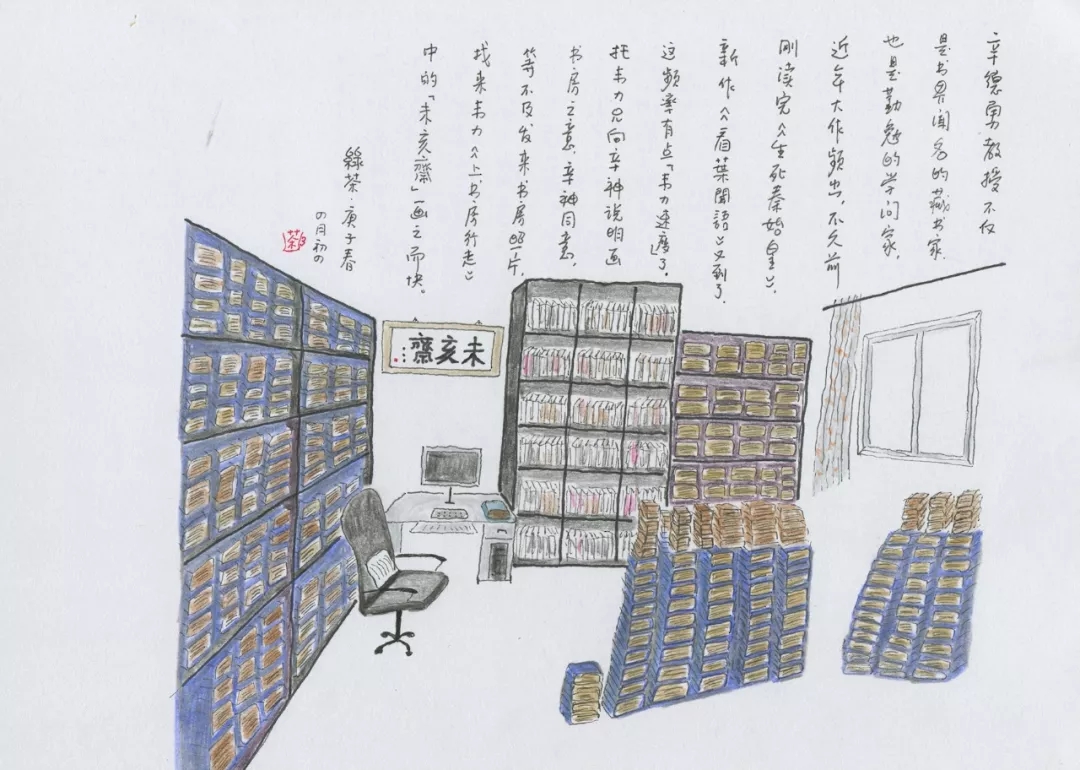 辛德勇教授不仅
是书界闻名的藏书家
也是勤勉的学问家，
近年大作频出，不久前
刚读完《生死秦始皇》，
新作《看葉闻語》又到了
这频率有点「韦力速度」了，
托韦力兄向辛神说明画
书房之意，辛神同意，
等不及发来书房照片，
找来韦力《上书房行走》
中的「未亥齋」画之而快。
綠茶·庚子春
の月初の
茶
未亥齋